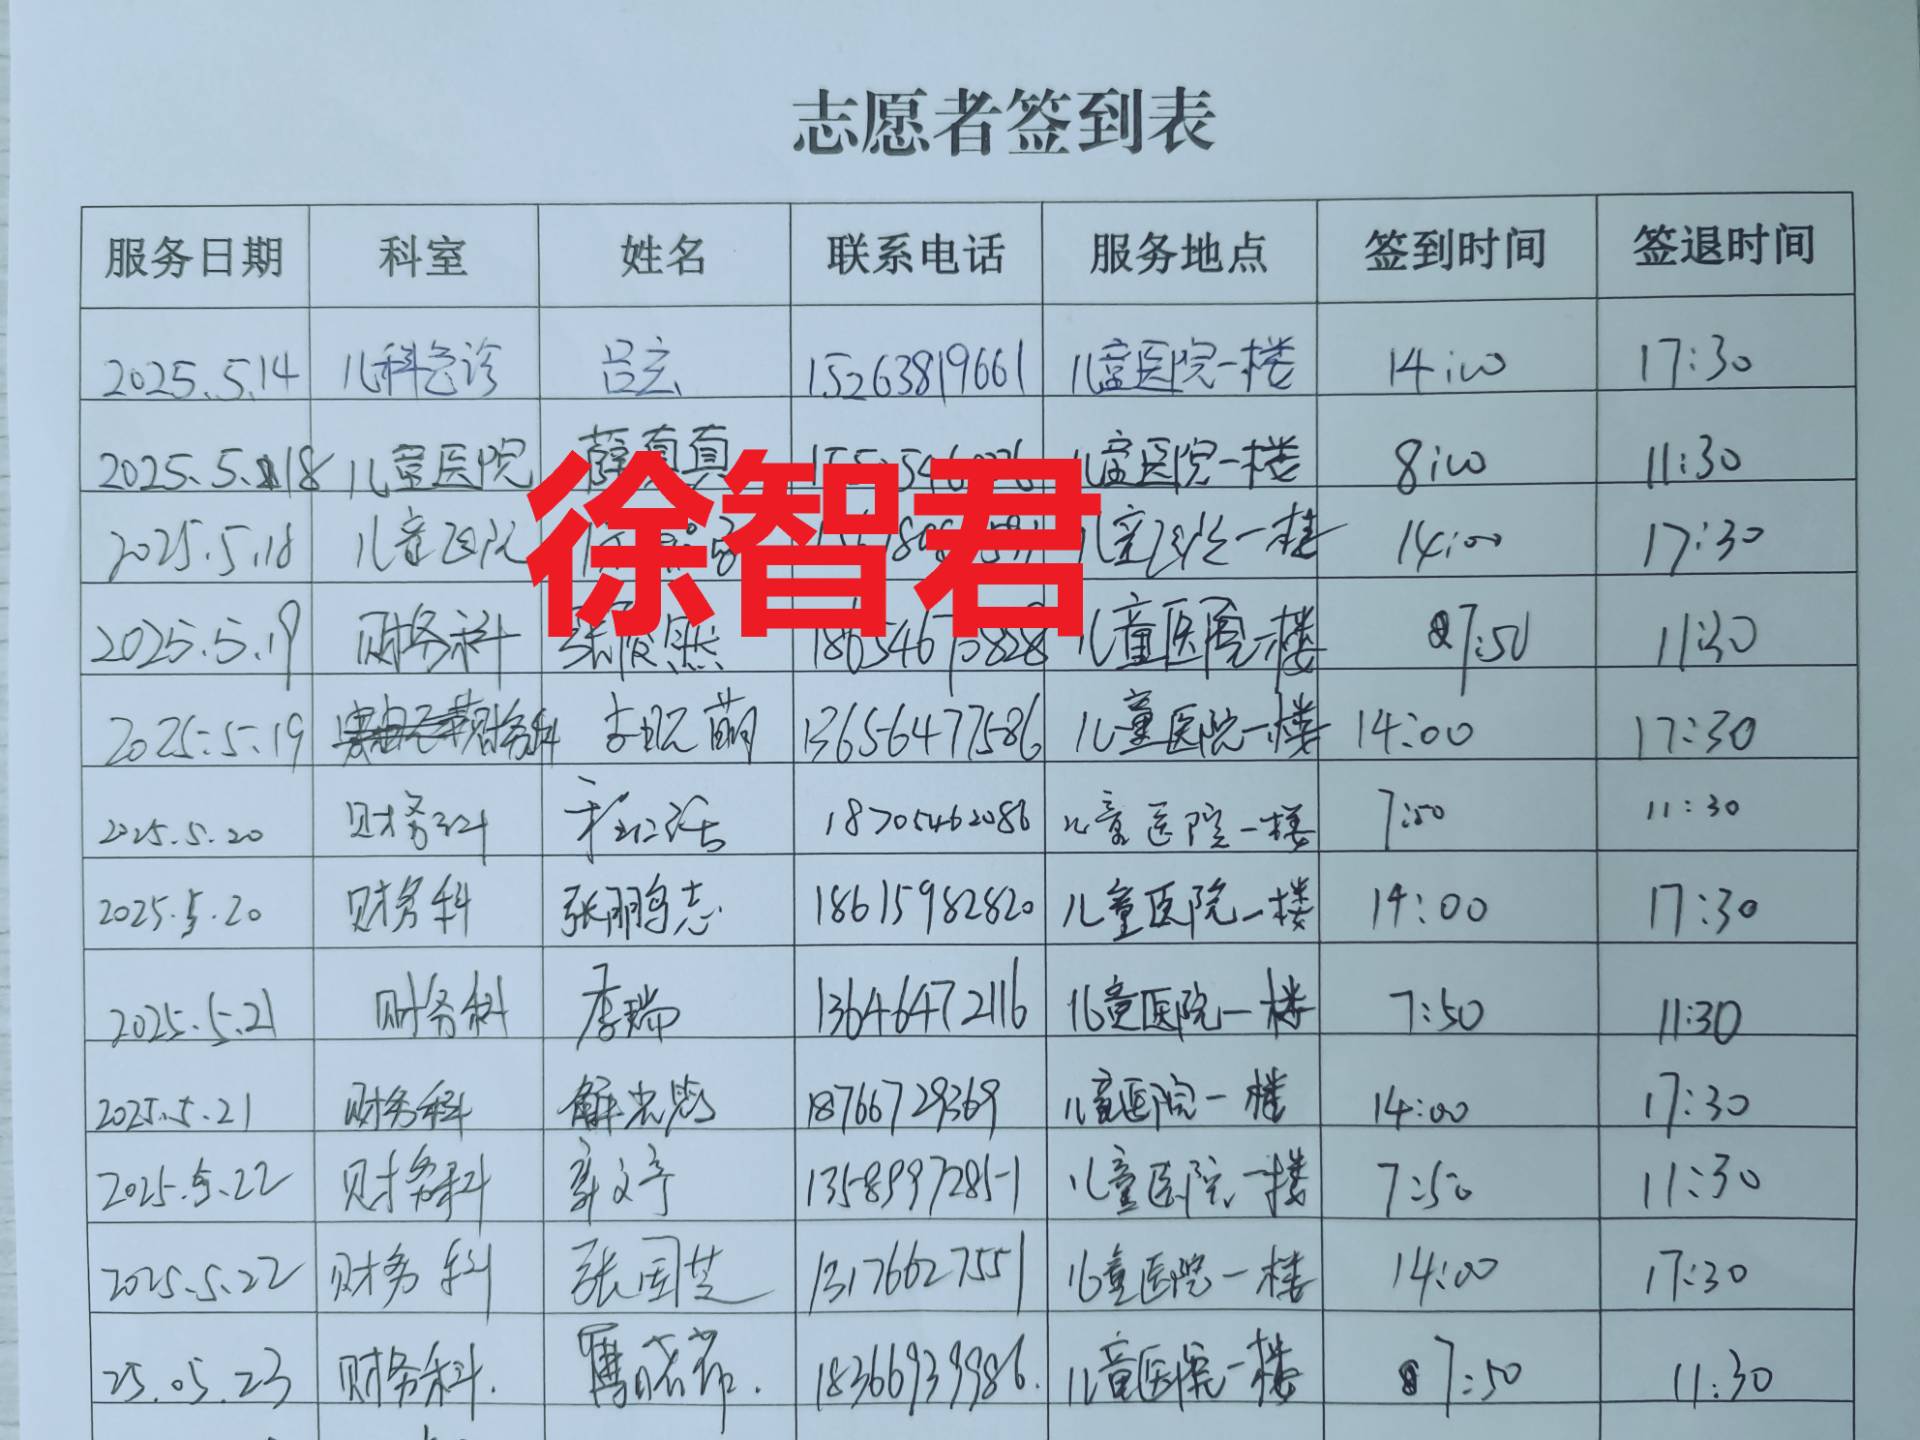 志愿者签到表
服务日期 科室 姓名 联系电话 服务地点 签到时间 签退时间
2025.5.14 儿科急诊 吕玄 15263819661 儿童医院一楼 14:00 17:30
2025.5.18 儿童医院 薛真真 儿童医院一楼 8:00 11:30
徐智君
2025.5.18 儿童医院 儿童医院一楼 14:00 17:30
2025.5.19 财务科 儿童医院一楼 7:50 11:30
2025.5.19 财务科 13656477586 儿童医院一楼 14:00 17:30
2025.5.20 财务科 18705462086 儿童医院一楼 7:50 11:30
2025.5.20 财务科 张鹏志 18615982820 儿童医院一楼 14:00 17:30
2025.5.21 财务科 李瑞 13646472116 儿童医院一楼 7:50 11:30
2025.5.21 财务科 18766729369 儿童医院一楼 14:00 17:30
2025.5.22 财务科 13589972851 儿童医院一楼 7:50 11:30
2025.5.22 财务科 张国芝 13176627551 儿童医院一楼 14:00 17:30
25.05.23 财务科. 18366939986. 儿童医院一楼 7:50 11:30